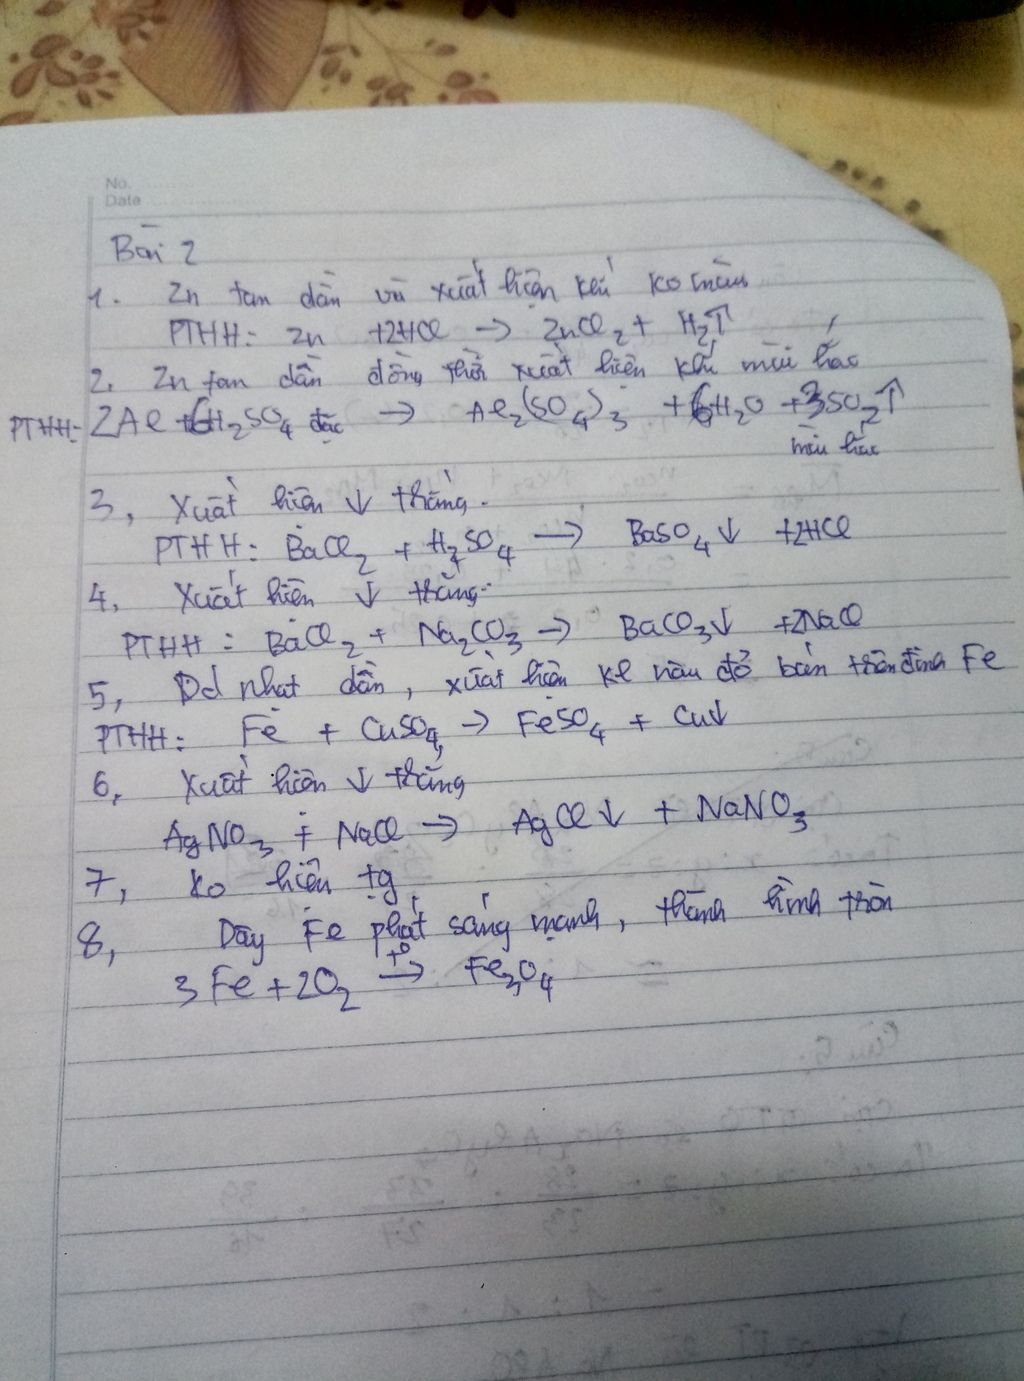 No.
Date
Bài 2
1. Zn tan dần và xuất hiện khí ko màu
PTHH: Zn +2HCl → ZnCl2 + H2↑
2. Zn tan dần đồng thời xuất hiện khí mùi hắc
PTHH: 2Al + 6H2SO4 đặc → Al2(SO4)3 + 6H2O + 3SO2↑
mùi hắc
3, Xuất hiện ↓ trắng.
PTHH: BaCl2 + H2SO4 → BaSO4↓ +2HCl
4, Xuất hiện ↓ trắng.
PTHH: BaCl2 + Na2CO3 → BaCO3↓ +2NaCl
5, Dd nhạt dần, xuất hiện kl màu đỏ bám trên đinh Fe
PTHH: Fe + CuSO4 → FeSO4 + Cu↓
6, Xuất hiện ↓ trắng
AgNO3 + NaCl → AgCl↓ + NaNO3
7, Ko hiện tg
8, Dây Fe phát sáng mạnh, thành hình tròn
3Fe + 2O2 t° → Fe3O4